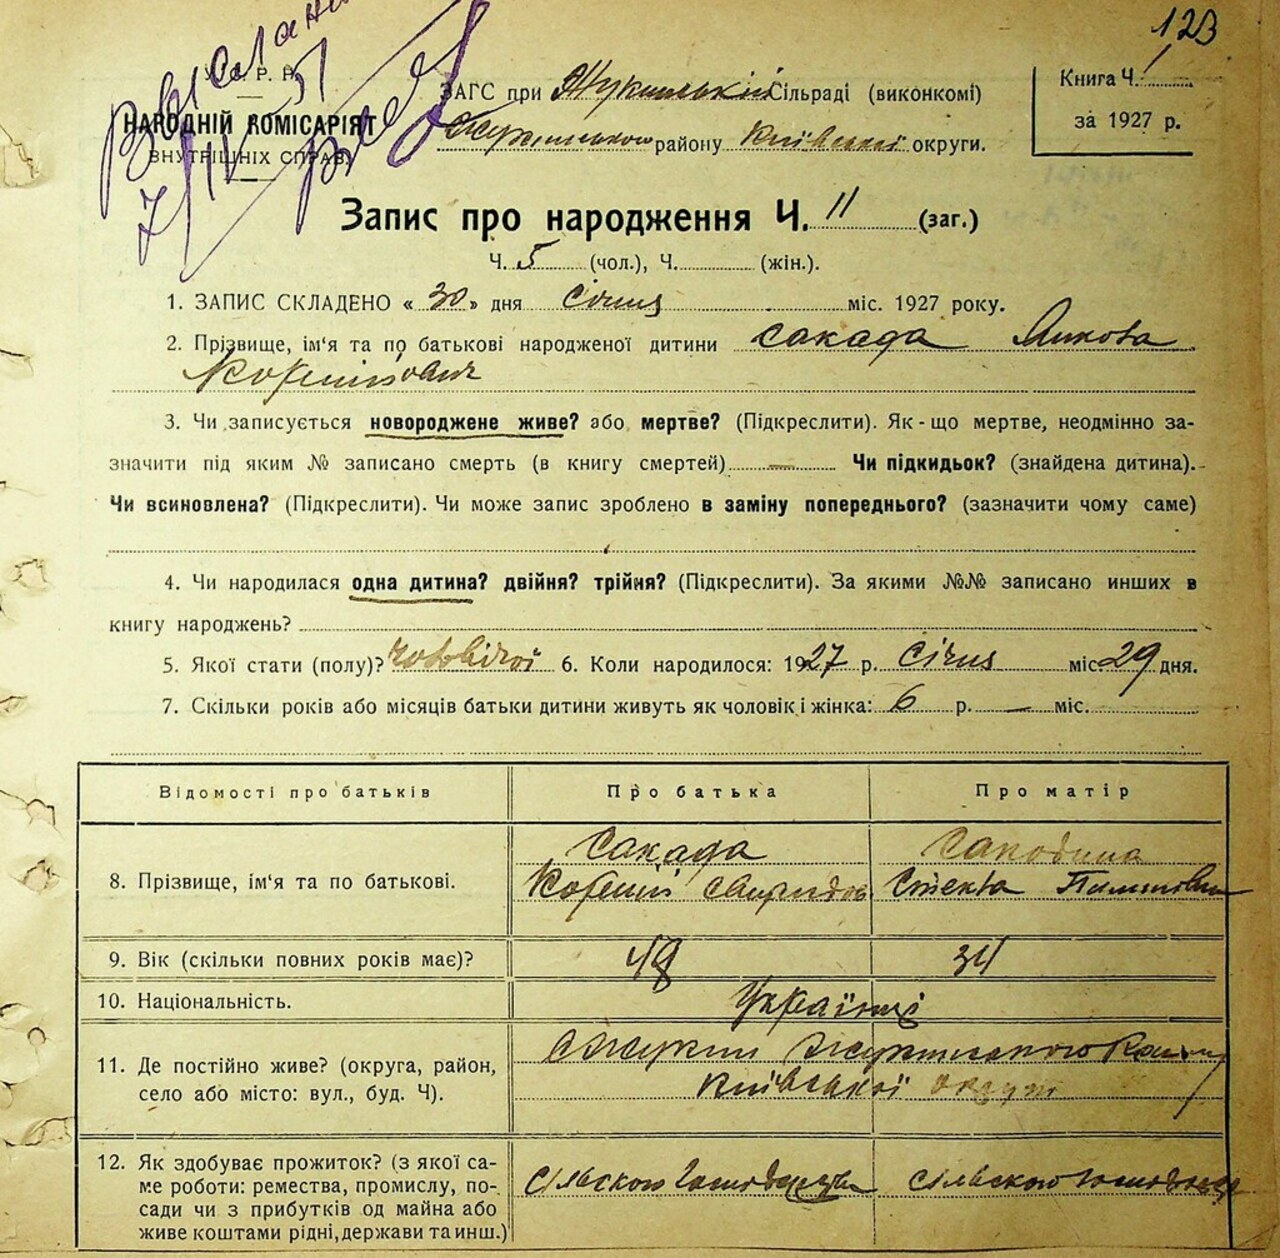 123
У.С.Р.Р.
НАРОДНІЙ КОМІСАРІЯТ
ВНУТРІШНІХ СПРАВ.
ЗАГС при Жукинській Сільраді (виконкомі)
району Київської округи.
Книга Ч. 1
за 1927 р.
Запис про народження Ч. 11 (заг.)
Ч. 5 (чол.), Ч. (жін.).
1. ЗАПИС СКЛАДЕНО « 30 » дня січня міс. 1927 року.
2. Прізвище, ім'я та по батькові народженої дитини Сакада Якова
3. Чи записується новороджене живе? або мертве? (Підкреслити). Як-що мертве, неодмінно за-
значити під яким № записано смерть (в книгу смертей) — Чи підкидьок? (знайдена дитина).
Чи всиновлена? (Підкреслити). Чи може запис зроблено в заміну попереднього? (зазначити чому саме)
4. Чи народилася одна дитина? двійня? трійня? (Підкреслити). За якими №№ записано инших в
книгу народжень?
5. Якої стати (полу)? чоловічої 6. Коли народилося: 1927 р. Січня міс. 29 дня.
7. Скільки років або місяців батьки дитини живуть як чоловік і жінка: 6 р. — міс.
Відомості про батьків Про батька Про матір
Сакада
8. Прізвище, ім'я та по батькові.
9. Вік (скільки повних років має)? 48 34
10. Національність. Українці
11. Де постійно живе? (округа, район,
село або місто: вул., буд. Ч). Київської округи
12. Як здобуває прожиток? (з якої са-
ме роботи: ремества, промислу, по-
сади чи з прибутків од майна або
живе коштами рідні, держави та инш.)
сільского господарства сільского господарства